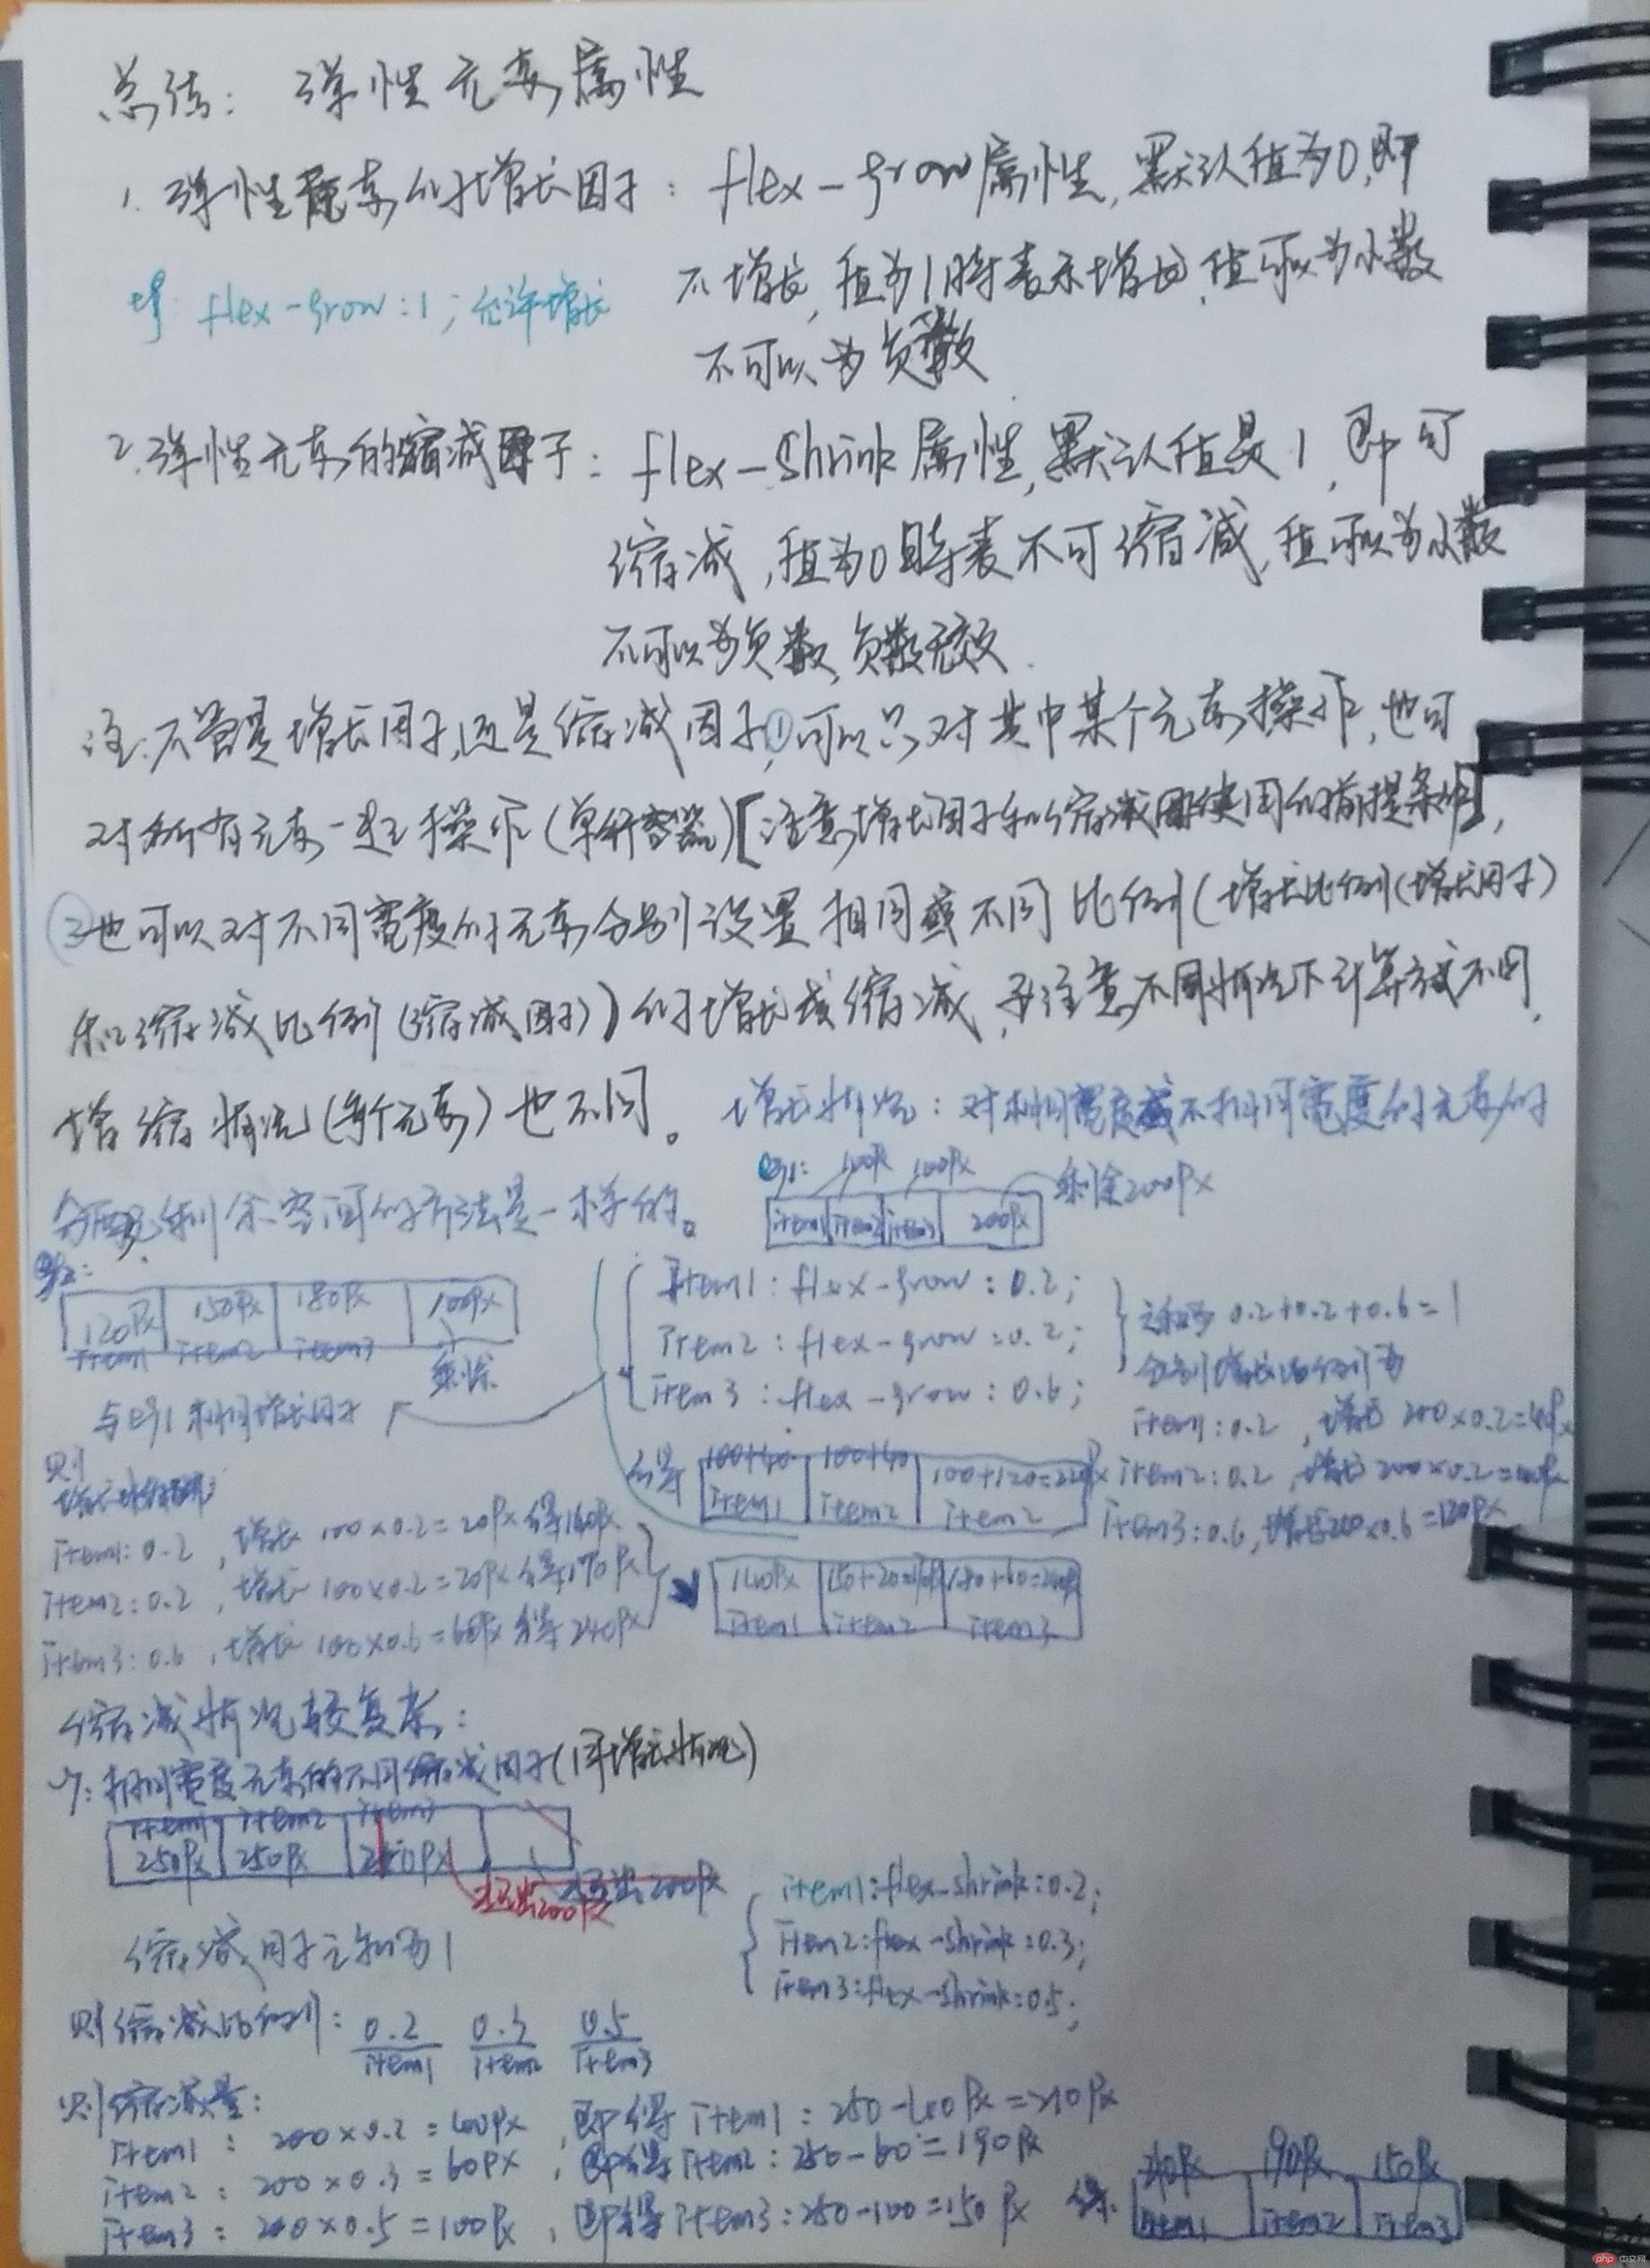 总结: 弹性元素属性
1. 弹性元素的增长因子: flex-grow属性,默认值为0,即
不增长,值为1时表示增长,值可以为小数
例 flex-grow:1; 允许增长
不可以为负数
2. 弹性元素的缩减因子: flex-shrink属性,默认值是1,即可
缩减,值为0时表不可缩减,值可以为小数
不可以为负数,负数无效.
注:不管是增长因子,还是缩减因子,①可以只对其中某个元素操作,也可
对所有元素一起操作(单行容器)[注意增长因子和缩减因子使用的前提条件],
②也可以对不同宽度的元素分别设置相同或不同比例(增长比例(增长因子)
和缩减比例(缩减因子))的增长或缩减,要注意不同情况下计算方式不同,
增缩情况(每个元素)也不同。
增长情况: 对相同宽度或不相同宽度的元素的
分配剩余空间的方法是一样的。
例1: 100px 100px 剩余200px
item1 item2 item3 200px
例2:
120px 150px 180px 100px
item1 item2 item3 剩余
与例1相同增长因子
item1: flex-grow: 0.2;
item2: flex-grow: 0.2;
item3: flex-grow: 0.6;
之和为 0.2+0.2+0.6=1
分别增长比例为
item1: 0.2, 增长 200×0.2=40px
item2: 0.2, 增长 200×0.2=40px
item3: 0.6, 增长200×0.6=120px
得 100+40 100+40 100+120=220px
item1 item2 item2
则
item1: 0.2, 增长 100×0.2=20px 得140px
item2: 0.2, 增长 100×0.2=20px 得170px
item3: 0.6, 增长 100×0.6=60px 得240px
140px 150+20=170px 180+60=240px
item1 item2 item3
缩减情况较复杂:
1: 相同宽度元素的不同缩减因子(同增长情况)
item1 item2 item3
250px 250px 250px
溢出200px
溢出200px
缩减因子之和为1
item1:flex-shrink:0.2;
item2:flex-shrink:0.3;
item3:flex-shrink:0.5;
则缩减比例: 0.2 0.3 0.5
item1 item2 item3
则缩减量:
item1: 200×0.2=40px, 即得 item1: 250-40px=210px
item2: 200×0.3=60px, 即得 item2: 250-60=190px
item3: 200×0.5=100px, 即得 item3: 250-100=150px
得: 210px 190px 150px
item1 item2 item3
php 中文网